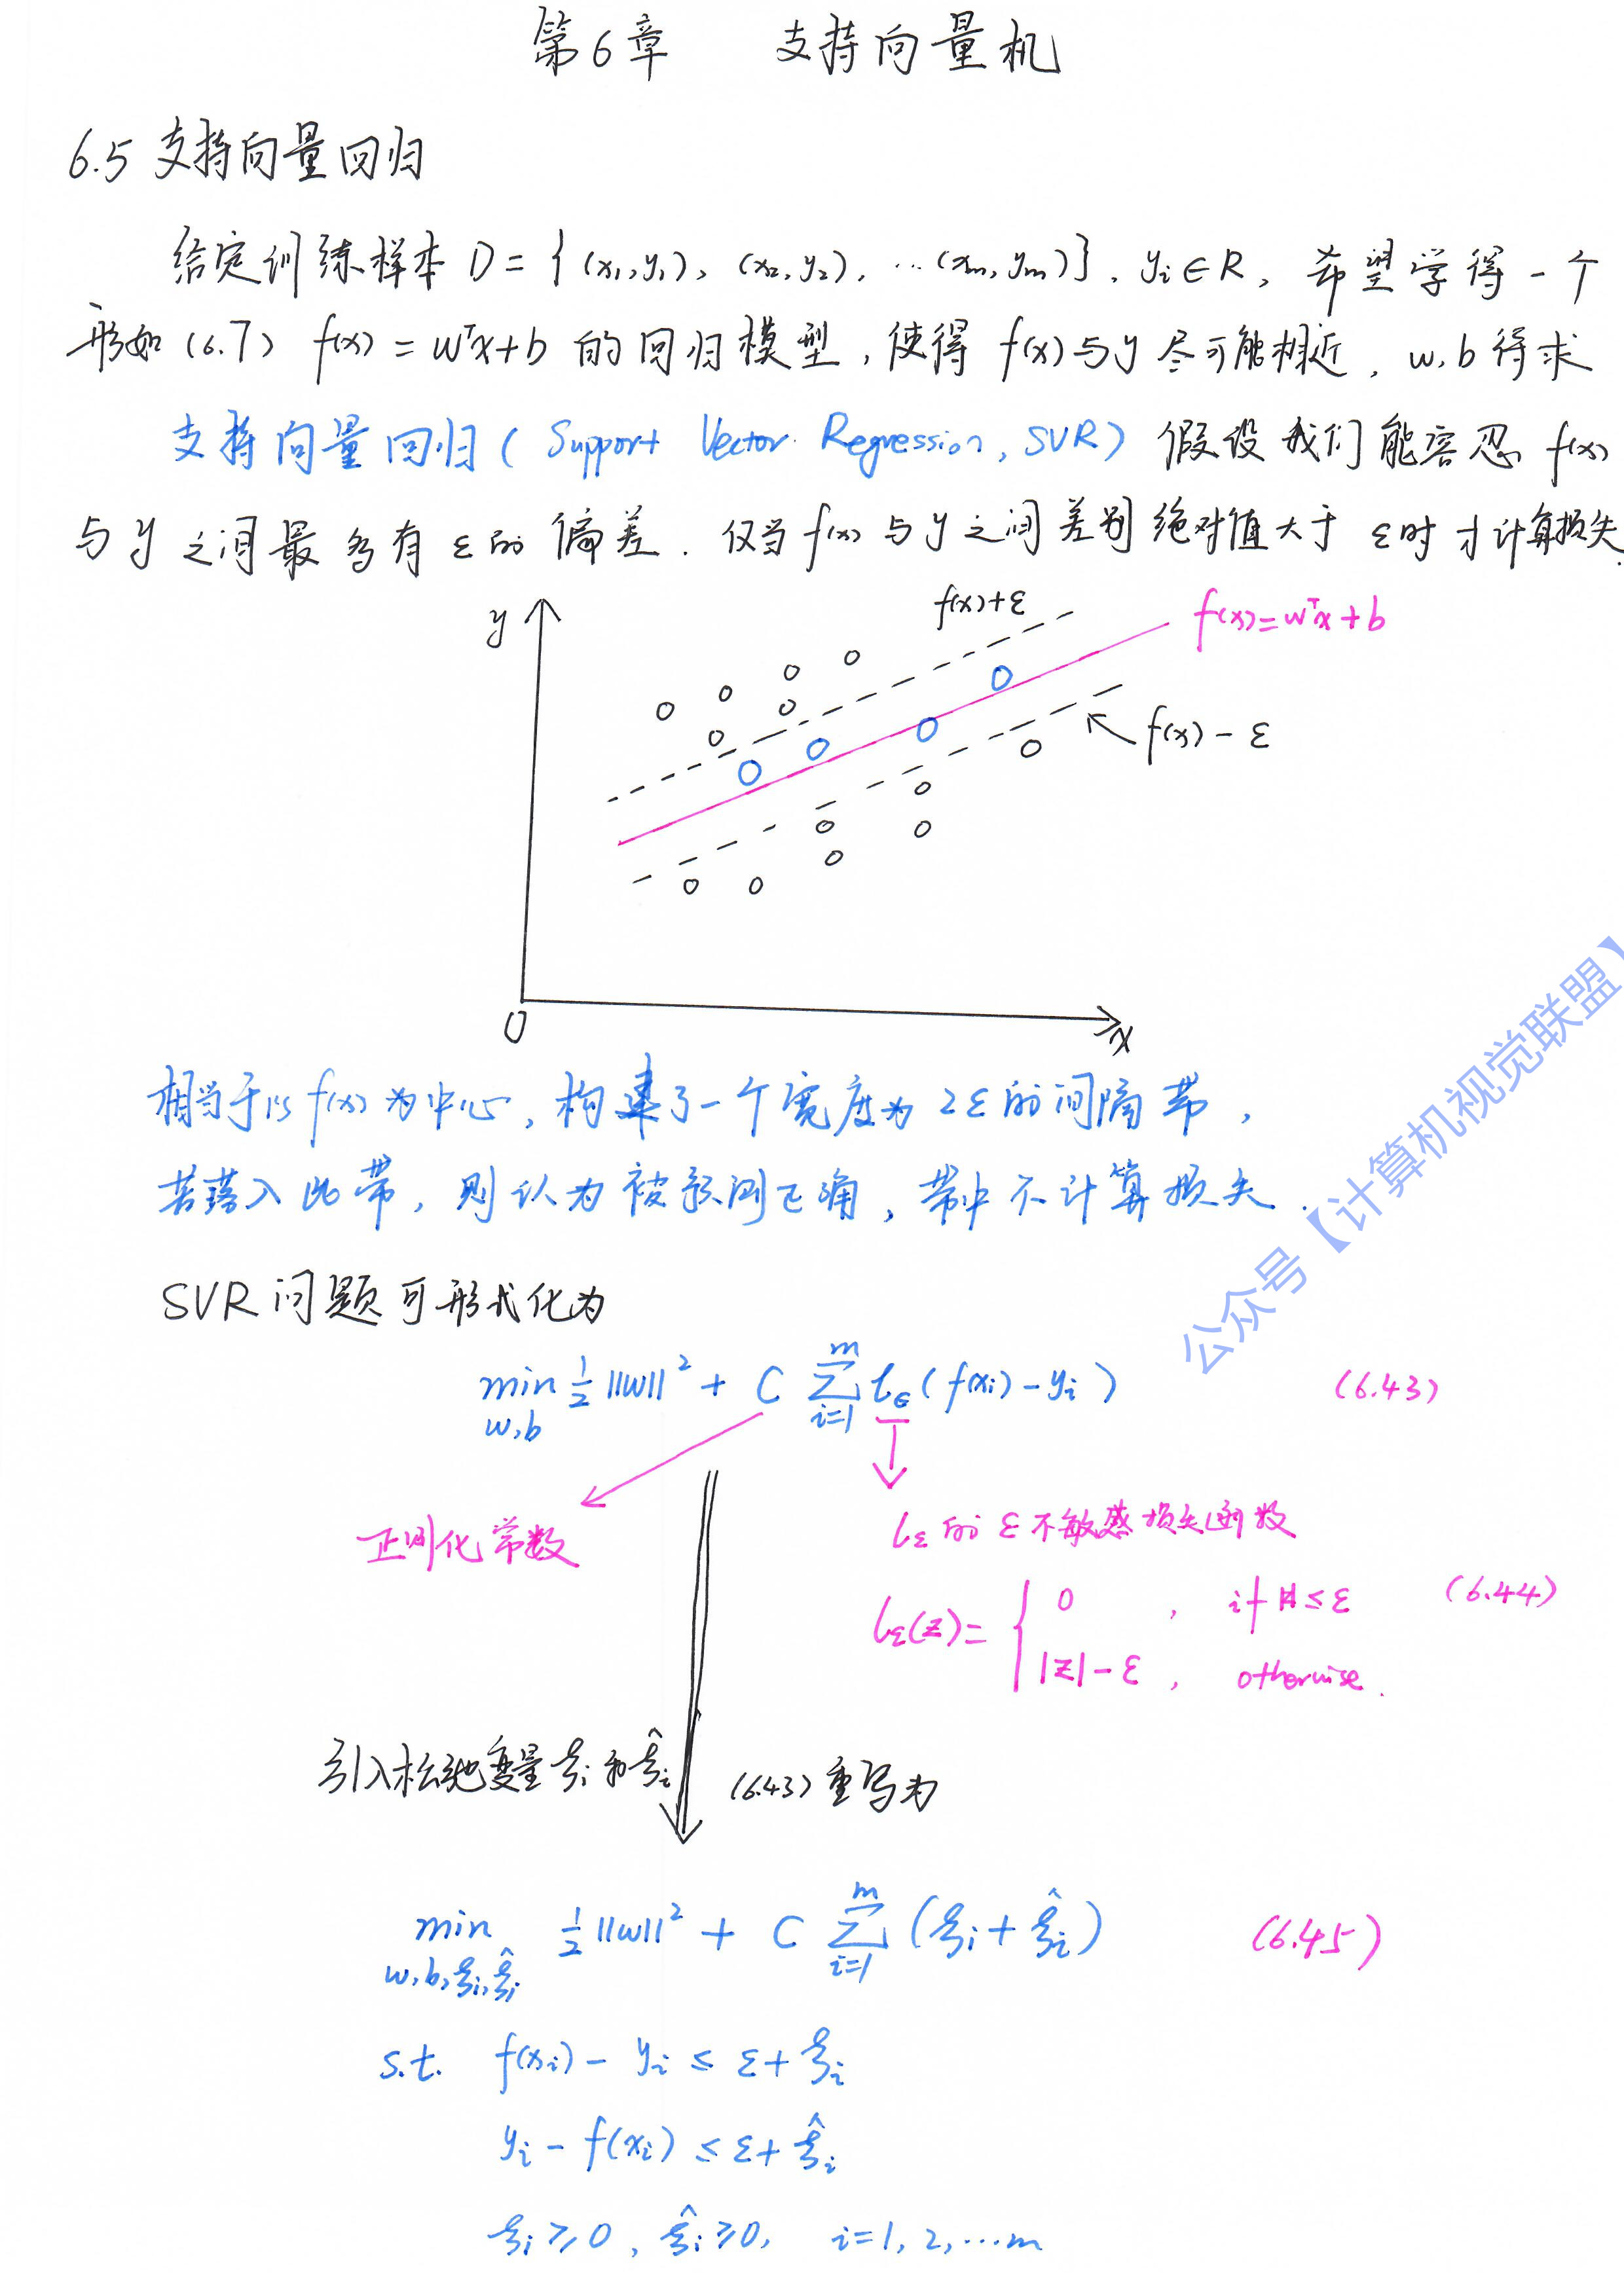 第6章 支持向量机
6.5 支持向量回归
给定训练样本 D = {(x₁,y₁), (x₂,y₂), …(xₘ,yₘ)}, yᵢ∈R, 希望学得一个
形如 (6.7) f(x) = wᵀx+b 的回归模型, 使得 f(x)与y 尽可能相近, w,b 待求
支持向量回归 ( Support Vector Regression, SVR) 假设我们能容忍 f(x)
与 y 之间最多有 ε 的偏差. 仅当 f(x) 与 y 之间差别绝对值大于 ε时才计算损失.
f(x)+ε
f(x)=wᵀx+b
y
f(x) - ε
0
x
相当于以 f(x) 为中心, 构建了一个宽度为 2ε的间隔带,
若落入此带, 则认为被预测正确, 带中不计算损失.
公众号【计算机视觉联盟】
SVR 问题可形式化为
min_{w,b} 1/2 ||w||² + C ∑_{i=1}^{m} ℓ_ε ( f(xᵢ) - yᵢ ) (6.43)
正则化常数
ℓ_ε 的 ε不敏感损失函数
ℓ_ε(z) = { 0 , if |z| ≤ ε (6.44)
|z| - ε , otherwise.
引入松弛变量 ξᵢ 和 ξ̂ᵢ
(6.43) 重写为
min_{w,b,ξᵢ,ξ̂ᵢ} 1/2 ||w||² + C ∑_{i=1}^{m} (ξᵢ + ξ̂ᵢ) (6.45)
s.t. f(xᵢ) - yᵢ ≤ ε + ξᵢ
yᵢ - f(xᵢ) ≤ ε + ξ̂ᵢ
ξᵢ ≥ 0, ξ̂ᵢ ≥ 0, i=1, 2, …m